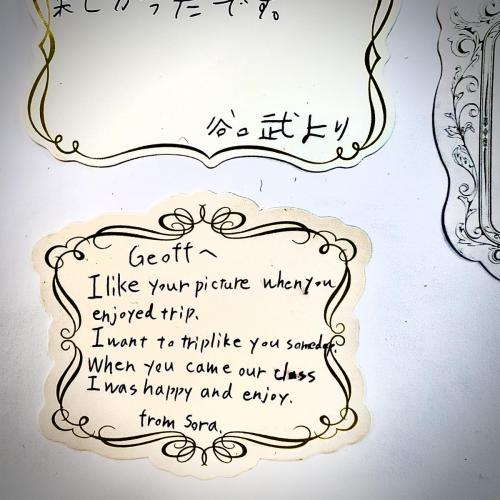 楽しかったです。
谷口武より
Geoffへ
I like your picture when you
enjoyed trip.
I want to trip like you someday.
When you came our class
I was happy and enjoy.
from Sora.